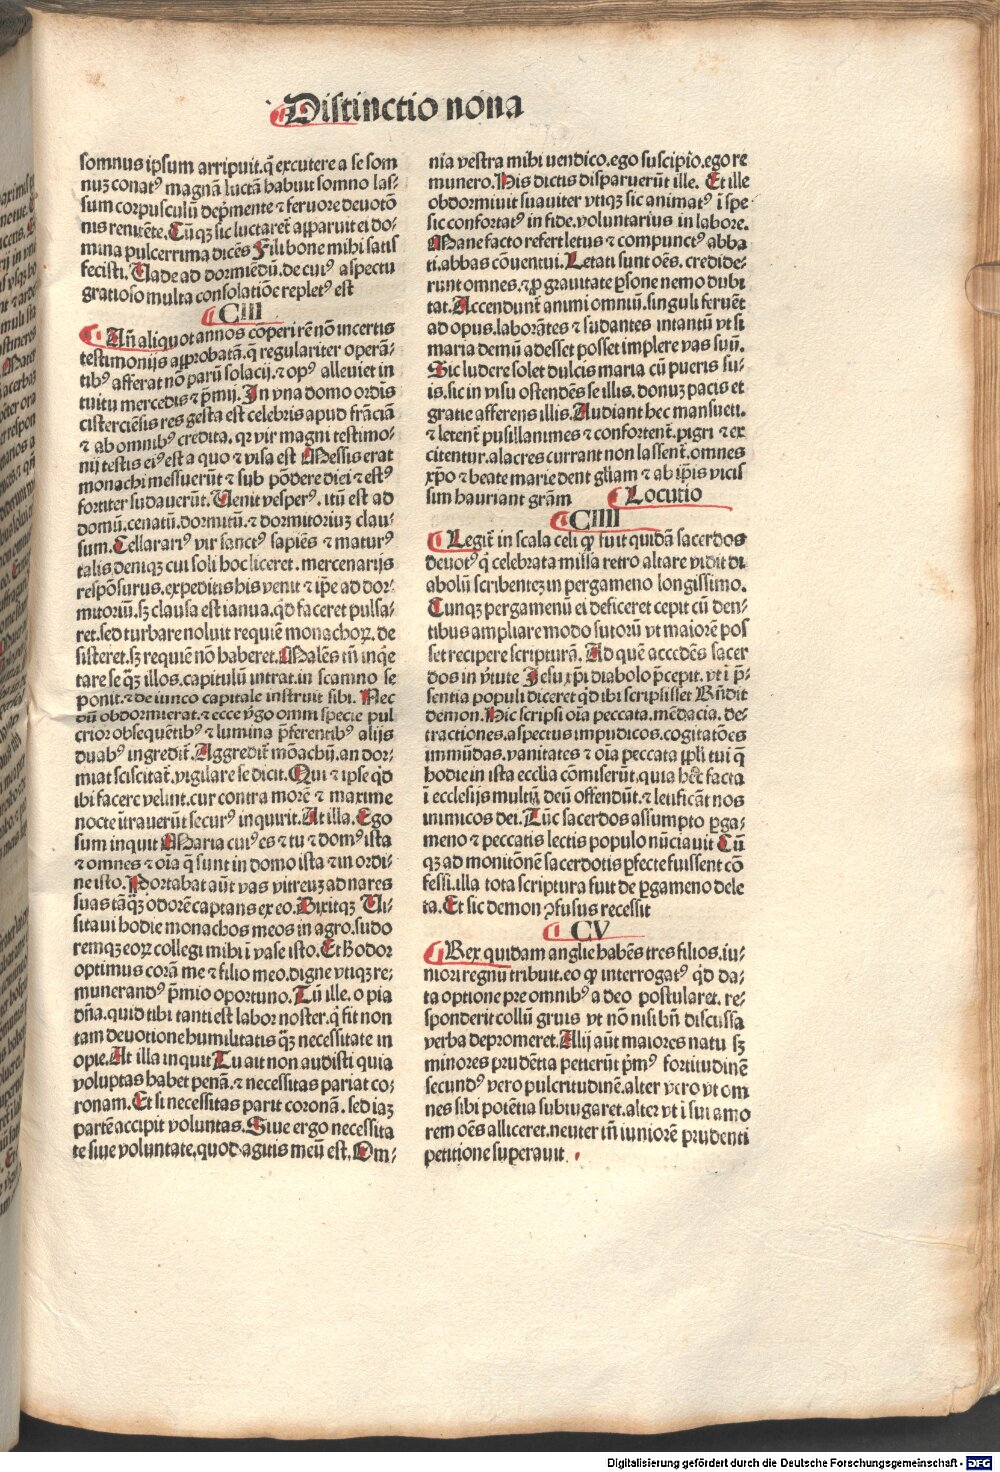 Distinctio nona
somnus ipsum arripuit. q̃ excutere a se som
nuꝫ conatꝰ magnã luctã habuit somno las⸗
sum corpusculũ dep̃mente ⁊ feruore deuotõ
nis renitẽte. Cũqꝫ sic luctaret᷑ apparuit ei do⸗
mina pulcerrima dicẽs Fili bone mihi satis
fecisti. Uade ad dormiẽdũ. de cuiꝰ aspectu
gratioso multa consolatiõe repletꝰ est
CIII
Añ aliquot annos cõperi rẽ nõ incertis
testimonijs approbatã. q̃ regulariter operã⸗
tibꝰ afferat nõ parũ solacij. ⁊ opꝰ alleuiet in
tuitu mercedis ⁊ p̃mij. In vna domo ordĩs
cisterciẽsis res gesta est celebris apud frãciã
⁊ ab omnibꝰ credita. qꝛ vir magni testimo⸗
nij testis eiꝰ est a quo ⁊ visa est Messis erat
monachi messuerũt ⁊ sub põdere diei ⁊ estꝰ
fortiter sudauerũt. Uenit vesperꝰ. itũ est ad
domũ. cenatũ. dormitũ. ⁊ dormitoriuꝫ clau⸗
sum. Cellerariꝰ vir sanctꝰ sapiẽs ⁊ maturꝰ
talis deniqꝫ cui soli hoc liceret. mercenarijs
respõsurus. expeditis his venit ⁊ ip̃e ad dor⸗
mitoriũ. sꝫ clausa est ianua. qd faceret pulsa⸗
ret. sed turbare noluit requiẽ monachoꝝ. de
sisteret. sꝫ requiẽ nõ haberet. Malẽs tñ inq̃e
tare se q̃ꝫ illos. capitulũ intrat. in scamno se
ponit. ⁊ de iunco capitale instruit sibi. Nec
dũ obdormierat. ⁊ ecce v̓go omni specie pul
crior obsequẽtibꝰ ⁊ lumina p̃ferentibꝰ alijs
duabꝰ ingredit᷑. Aggredit᷑ mõachũ. an dor⸗
miat sciscitat᷑. vigilare se dicit. Qui ⁊ ipse qd
ibi facere velint. cur contra morẽ ⁊ maxime
nocte ĩtrauerũt securꝰ inquirit. At illa. Ego
sum inquit Maria cuiꝰ es ⁊ tu ⁊ domꝰ ista
⁊ omnes ⁊ oĩa q̃ sunt in domo ista ⁊ in ordi⸗
ne isto. Portabat aũt vas vitreuꝫ ad nares
suas tãqꝫ odorẽ captans ex eo. Dixitqꝫ Ui⸗
sitaui hodie monachos meos in agro. sudo
remqꝫ eoꝝ collegi mihi ĩ vase isto. Et ħ odor
optimus corã me ⁊ filio meo. digne vtiqꝫ re⸗
munerandꝰ p̃mio oportuno. Tũ ille. o pia
dña. quid tibi tanti est labor noster. q̃ fit non
tam deuotione humilitatis q̃ꝫ necessitate in
opie. At illa inquit Tu ait non audisti quia
voluptas habet penã. ⁊ necessitas pariat co⸗
ronam. Et si necessitas parit coronã. sed iaꝫ
partẽ accipit voluntas. Siue ergo necessita
te siue voluntate. quod agitis meũ est. Om⸗
nia vestra mihi uendico. ego suscipio. ego re
munero. His dictis disparuerũt ille. Et ille
obdormiuit suauiter vtiqꝫ sic animatꝰ ĩ spe
sic confortatꝰ in fide. voluntarius in labore.
Mane facto refert letus ⁊ compunctꝰ abba
ti. abbas cõuentui. Letati sunt oẽs. credide⸗
runt omnes. ⁊ ꝓ grauitate ꝑsone nemo dubi
tat. Accendunt᷑ animi omniũ. singuli feruẽt
ad opus. laborãtes ⁊ sudantes intantũ vt si
maria demũ adesset posset implere vas suũ.
Sic ludere solet dulcis maria cũ pueris su⸗
is. sic in visu ostendẽs se illis. donuꝫ pacis et
gratie afferens illis. Audiant hec mansueti.
⁊ letent᷑ pusillanimes ⁊ confortent᷑. pigri ⁊ ex
citentur. alacres currant non lassent᷑. omnes
xp̃o ⁊ beate marie dent gl̃iam ⁊ ab ip̃is vicis
sim hauriant grãm Locutio
CIIII
Legit᷑ in scala celi ꝙ fuit quidã sacerdos
deuotꝰ q̃ celebrata missa retro altare vidit di
abolũ scribenteꝫ in pergameno longissimo.
Cunqꝫ pergamenũ ei deficeret cepit cũ den⸗
tibus ampliare modo sutorũ vt maiorẽ pos
set recipere scripturã. Ad quẽ accedẽs sacer
dos in v̓tute Jesu xp̃i diabolo p̃cepit. vt ĩ p̃⸗
sentia populi diceret qd ibi scripsisset Rñdit
demon. Hic scripsi oĩa peccata. mẽdacia. de⸗
tractiones. aspectus impudicos. cogitatões
immũdas. vanitates ⁊ oĩa peccata ip̃li tui q̃
hodie in ista ecclia cõmiserũt. quia hec facta
ĩ ecclesijs multũ deũ offendũt. ⁊ letificãt nos
inimicos dei. Tũc sacerdos assumpto ꝑga⸗
meno ⁊ peccatis lectis populo nũciauit Cũ
qꝫ ad monitõnẽ sacerdotis ꝑfecte fuissent cõ
fessi. illa tota scriptura fuit de ꝑgameno dele
ta. Et sic demon ꝯfusus recessit
CV
Rex quidam anglie habẽs tres filios. iu⸗
niori regnũ tribuit. eo ꝙ interrogatꝰ qd da⸗
ta optione pre omnibꝰ a deo postularet. re⸗
sponderit collũ gruis vt nõ nisi bñ discussa
verba depromeret. Alij aũt maiores natu sꝫ
minores prudẽtia petierũt p̃mꝰ fortitudinẽ
secundꝰ vero pulcritudinẽ. alter vero vt om
nes sibi potẽtia subiugaret. alter vt ĩ sui amo
rem oẽs alliceret. neuter tñ iuniorẽ prudenti
petitione superauit.
Digitalisierung gefördert durch die Deutsche Forschungsgemeinschaft - DFG